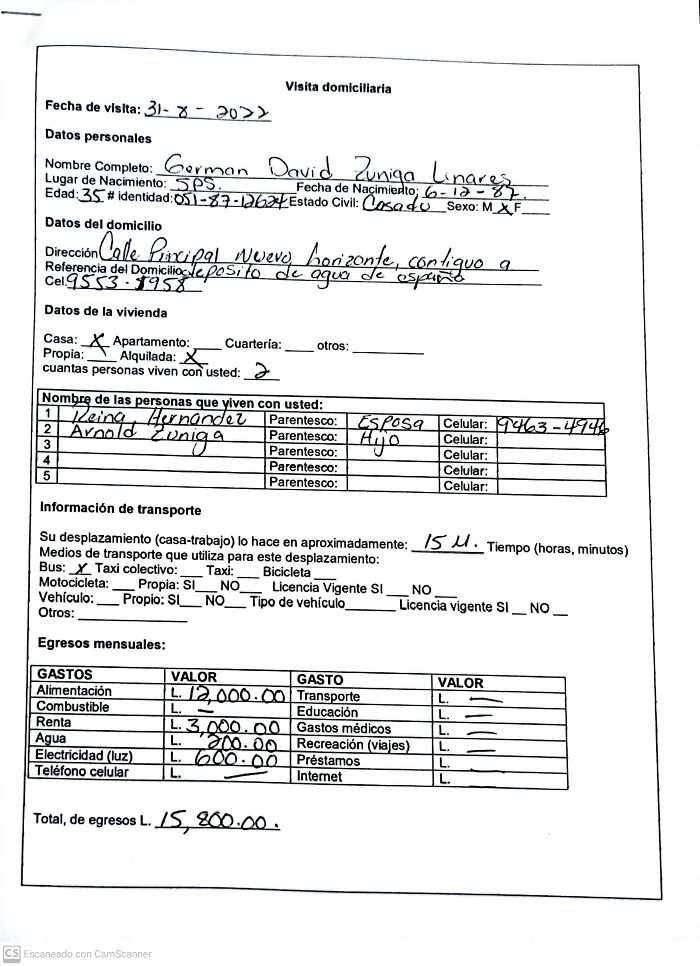 Visita domiciliaria
Fecha de visita: 31-8-2022
Datos personales
Nombre Completo: German David Zuniga Linares
Lugar de Nacimiento: SPS. Fecha de Nacimiento: 6-12-87.
Edad: 35 # identidad: 051-87-12624 Estado Civil: Casado Sexo: M X F
Datos del domicilio
Dirección Calle Principal Nuevo horizonte, contiguo a
Referencia del Domicilio deposito de agua de españa
Cel. 9553-1958
Datos de la vivienda
Casa: X Apartamento: ____ Cuartería: ____ otros: ____
Propia: Alquilada: X
cuantas personas viven con usted: 2
Nombre de las personas que viven con usted:
1 Reina Hernandez Parentesco: Esposa Celular: 9463-4946
2 Arnold Zuniga Parentesco: Hijo Celular:
3 Parentesco: Celular:
4 Parentesco: Celular:
5 Parentesco: Celular:
Información de transporte
Su desplazamiento (casa-trabajo) lo hace en aproximadamente: 15 M. Tiempo (horas, minutos)
Medios de transporte que utiliza para este desplazamiento:
Bus: X Taxi colectivo: ____ Taxi: ____ Bicicleta ____
Motocicleta: ____ Propia: SI____ NO____ Licencia Vigente SI ____ NO ____
Vehículo: ____ Propio: SI____ NO____ Tipo de vehículo________ Licencia vigente SI __ NO __
Otros: ________________
Egresos mensuales:
GASTOS VALOR GASTO VALOR
Alimentación L. 12,000.00 Transporte L. —
Combustible L. — Educación L. —
Renta L. 3,000.00 Gastos médicos L. —
Agua L. 200.00 Recreación (viajes) L. —
Electricidad (luz) L. 600.00 Préstamos L. __
Teléfono celular L. — Internet L. __
Total, de egresos L. 15,800.00.
CS Escaneado con CamScanner